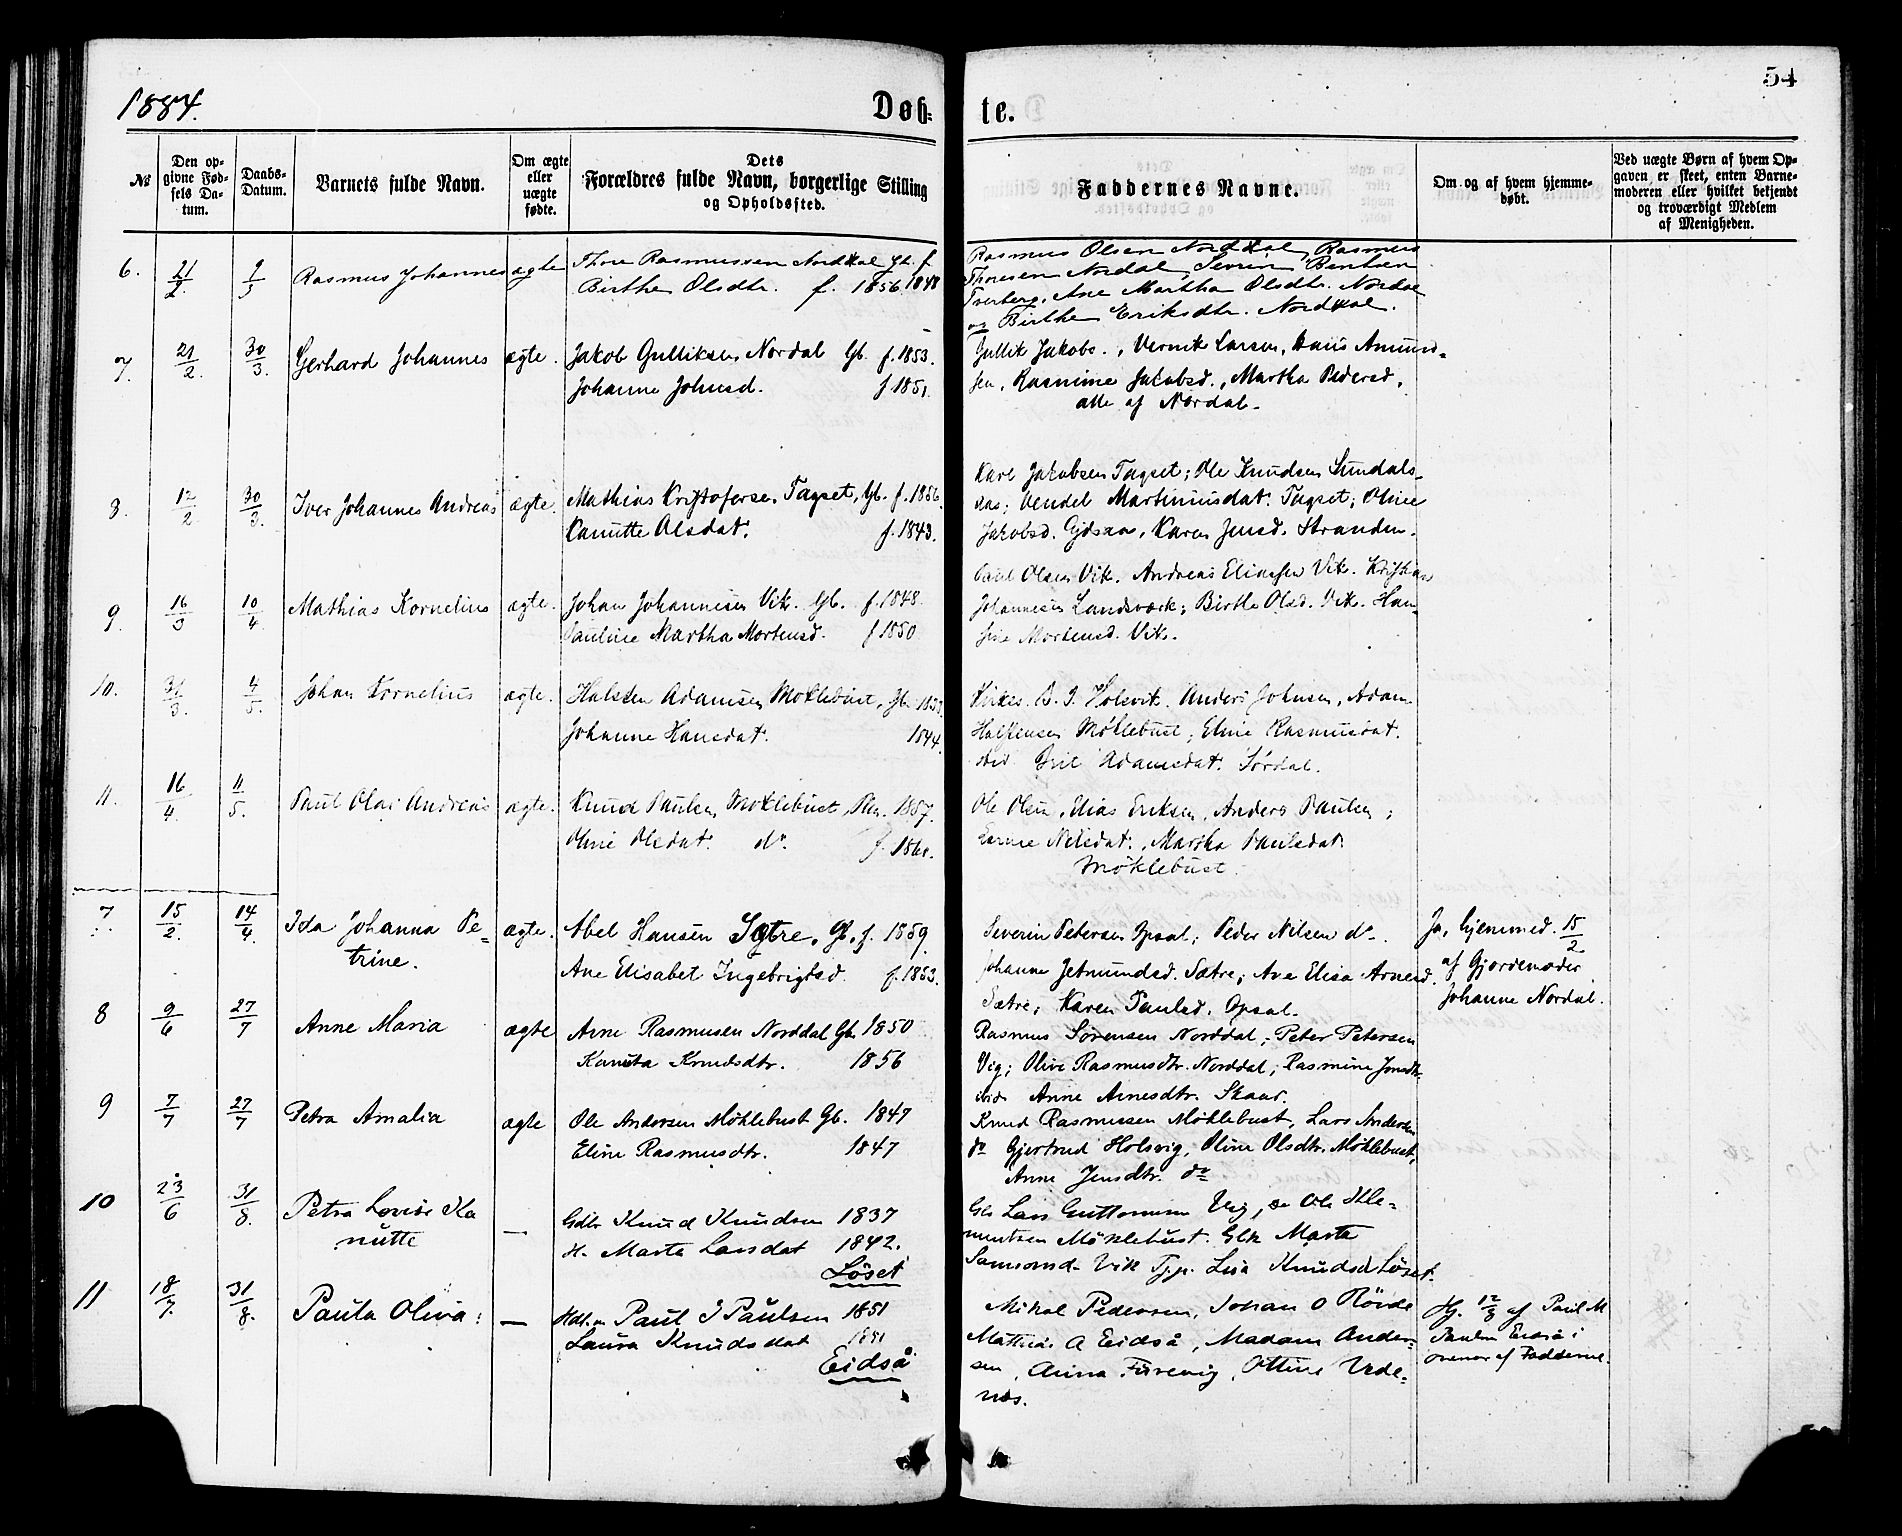 1884.
Døb-
te.
54
№
Den op-
givne Fød-
sels Da-
tum.
Daabs-
Datum.
Barnets fulde Navn.
Om ægte
eller
uægte
fødte.
Dets
Forældres fulde Navn, borgerlige Stilling
og Opholdssted.
Faddernes Navne.
Om og af hvem hjemme-
døbt.
Ved uægte Børn af hvem Op-
gaven er skeet, enten Barne-
moderen eller hvilket bekjendt
og troværdigt Medlem
af Menigheden.
6. 21/2. 9/3 Rasmus Johannes ægte Thore Rasmussen Norddal Gb. f. 1848
Birthe Olsdtr. f. 1856.
Rasmus Olsen Norddal, Rasmus
Thoresen Nordal, Severin Bentsen
Tverberg, Ane Martha Olsdtr. Nordal
og Birthe Eriksdtr. Norddal.
7. 21/2. 30/3. Gerhard Johannes ægte. Jakob Gulliksen Nordal Gb. f. 1853.
Johanne Johnsd. f 1851.
Gullik Jakobs., Vernik Larsen, Amund-
sen, Rasmine Jakobsd., Martha Pedersd,
alle af Nordal.
8. 12/2. 30/3. Iver Johannes Andreas ægte. Mathias Kristofersen Tagset, Gb. f. 1856.
Kanutte Olsdat. f. 1843.
Karl Jakobsen Tagset; Ole Knudsen Sundals-
Vendel Martiniusdat. Tagset; Oline
Jakobsd. Karen Jensd. Stranden.
9. 16/3 10/4. Mathias Kornelius ægte. Johan Johannesen Vik. Gb. f. 1848.
Pauline Martha Mortensd. f 1850
Paul Olsen Vik. Andreas Eliassen Vik. Kristian
Johannesen Landsværk; Birthe Olsd. Vik. Han-
sine Mortensd. Vik.
10. 31/3. 4/5. Johan Kornelius ægte. Halsten Adamsen Møklebust, Gb. 1853.
Johanne Hansdat. 1844.
Kirkes. Holsvik. Anders Johnsen, Adam
Halstensen Møklebust, Eline Rasmusdat.
Adamsdat. Sørdal.
11. 16/4. 11/5. Paul Olai Andreas ægte. Knud Paulsen Møklebust, 1857.
Oline Olsdat. do. f.
Ole Olsen, Elias Eriksen, Anders Paulsen;
Nilsdat., Martha Paulsdat.
Møklebust.
7 15/2. 14/4. Ida Johanna Pe-
trine.
ægte. Abel Hansen Sætre, Gb. f. 1859.
Ane Elisabet Ingebrigtsd. f. 1853.
Severin Petersen Opsal; Peder Nilsen do.
Johanne Jetmundsd. Sætre; Ane Elisa Arnesd.
Sætre; Karen Paulsd. Opsal.
Ja, hjemmed. 15/2.
af Gjordemoder
Johanne Nordal.
8 9/6 27/7 Anne Maria ægte Arne Rasmusen Norddal Gb. 1850
Kanuta Knudsdtr. 1856
Rasmus Sørensen Norddal; Peter Petersen
Vig; Olive Rasmusdtr. Norddal; Rasmine Jonsdtr.
ibid. Anne Arnesdtr. Skaar.
9 7/7 27/7 Petra Amalia ægte Ole Andersen Møklebust Gb. 1847
Eline Rasmusdtr. 1847
Knud Rasmussen Møklebust, Lars Andersen
do Gjertrud Holsvig, Oline Olsdtr. Møklebust,
Anne Jensdtr. do
10 23/6 31/8. Petra Lovise Ka
nutte
— Gdbr Knud Knudsen 1837
H. Marte Larsdat 1842.
Løset
Gb Lars Guttormsen Vig, Ole Kle-
mentsen Møklebust. Gbk Marte
Samsonsd Vik Tjp. Lisa Knudsd Løset.
11 18/7. 31/8. Paula Olivia: — Hdl. Paul I Paulsen 1851
Laura Knudsdat 1851
Eidså
Mikal Pedersen, Johan O Røvde
Mathias A Eidså, Madam Ander-
sen, Anna Furevig, Ottine Vede-
nes.
Hj. af Paul M
Paulsen Eidså i
overvær af Fadderne.